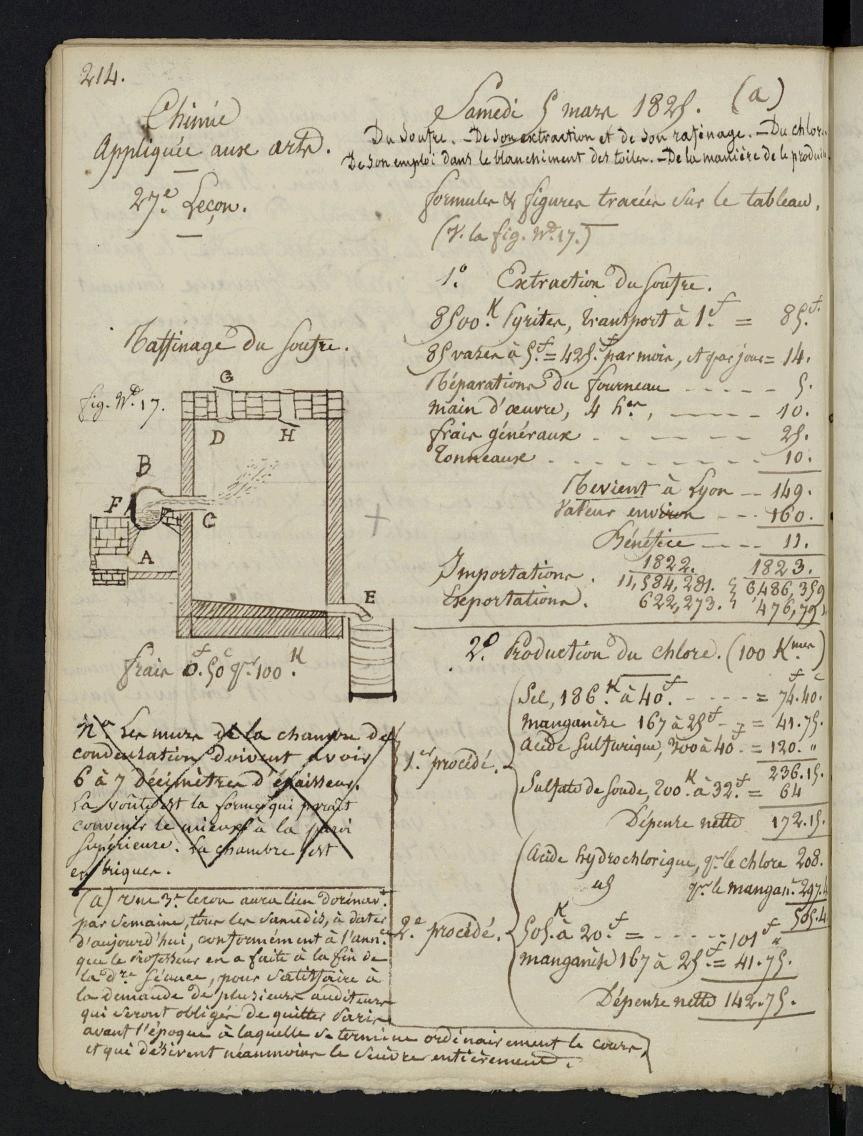 214.
Chimie
Appliquée aux arts.
27.e Leçon.
Samedi 5 mars 1825. (a)
Du Soufre. - De son extraction et de son rafinage. - Du chlore
De son emploi dans le blanchiment des toiles. - De la manière de le produire
formules & figures tracées sur le tableau.
(V. la fig. No. 17.)
1.o Extraction du Soufre.
8500.K Pyrites, transport à 1.f = 85.f
85 vases à 5.f = 425.f par mois, et par jour = 14.
Réparations du fourneau - - - - - 5.
main d'œuvre, 4 hes, - - - - 10.
frais généraux - - - - - 25.
Tonneaux - - - - - - - - 10.
Revient à Lyon -- 149.
Valeur environ - - - 160.
Bénéfice - - - - 11.
1822. 1823.
Importations. 11,584,281. 6,486,359
Exportations. 622,273. 476,791
Raffinage du Soufre.
fig. No. 17.
G
D H
B
F
C
A
E
frais 0.f 50c pr. 100.K
Na Les murs de la chambre de
condensation doivent avoir
6 à 7 décimètres d'épaisseur.
La voûte est la forme qui paraît
convenir le mieux à la paroi
supérieure. La chambre est
en briques.
(a) Une 3.e leçon aura lieu dorénavt.
par semaine, tous les samedis, à dater
d'aujourd'hui, conformément à l'annce
que le Professeur en a faite à la fin de
la dre séance, pour satisfaire à
la demande de plusieurs auditeurs
qui seront obligés de quitter Paris
avant l'époque à laquelle se termine ordinairement le cours,
et qui désirent néanmoins le suivre entièrement.
2.o Production du chlore. (100 Kmes)
1.er procédé.
Sel, 186.K à 40.f - - - - = 74.f 40.c
manganèse 167 à 25f - - = 41.75.
Acide Sulfurique, 300 à 40 - = 120. "
236.15.
Sulfate de soude, 200.K à 32.f = 64
Dépense nette 172.15.
2.e procédé.
Acide hydrochlorique, pr. le chlore 208.
id pr. le mangan.e 297.4
505.4
505.K à 20.f = - - - - - 101 f "
manganèse 167 à 25f = 41.75.
Dépense nette 142.75.